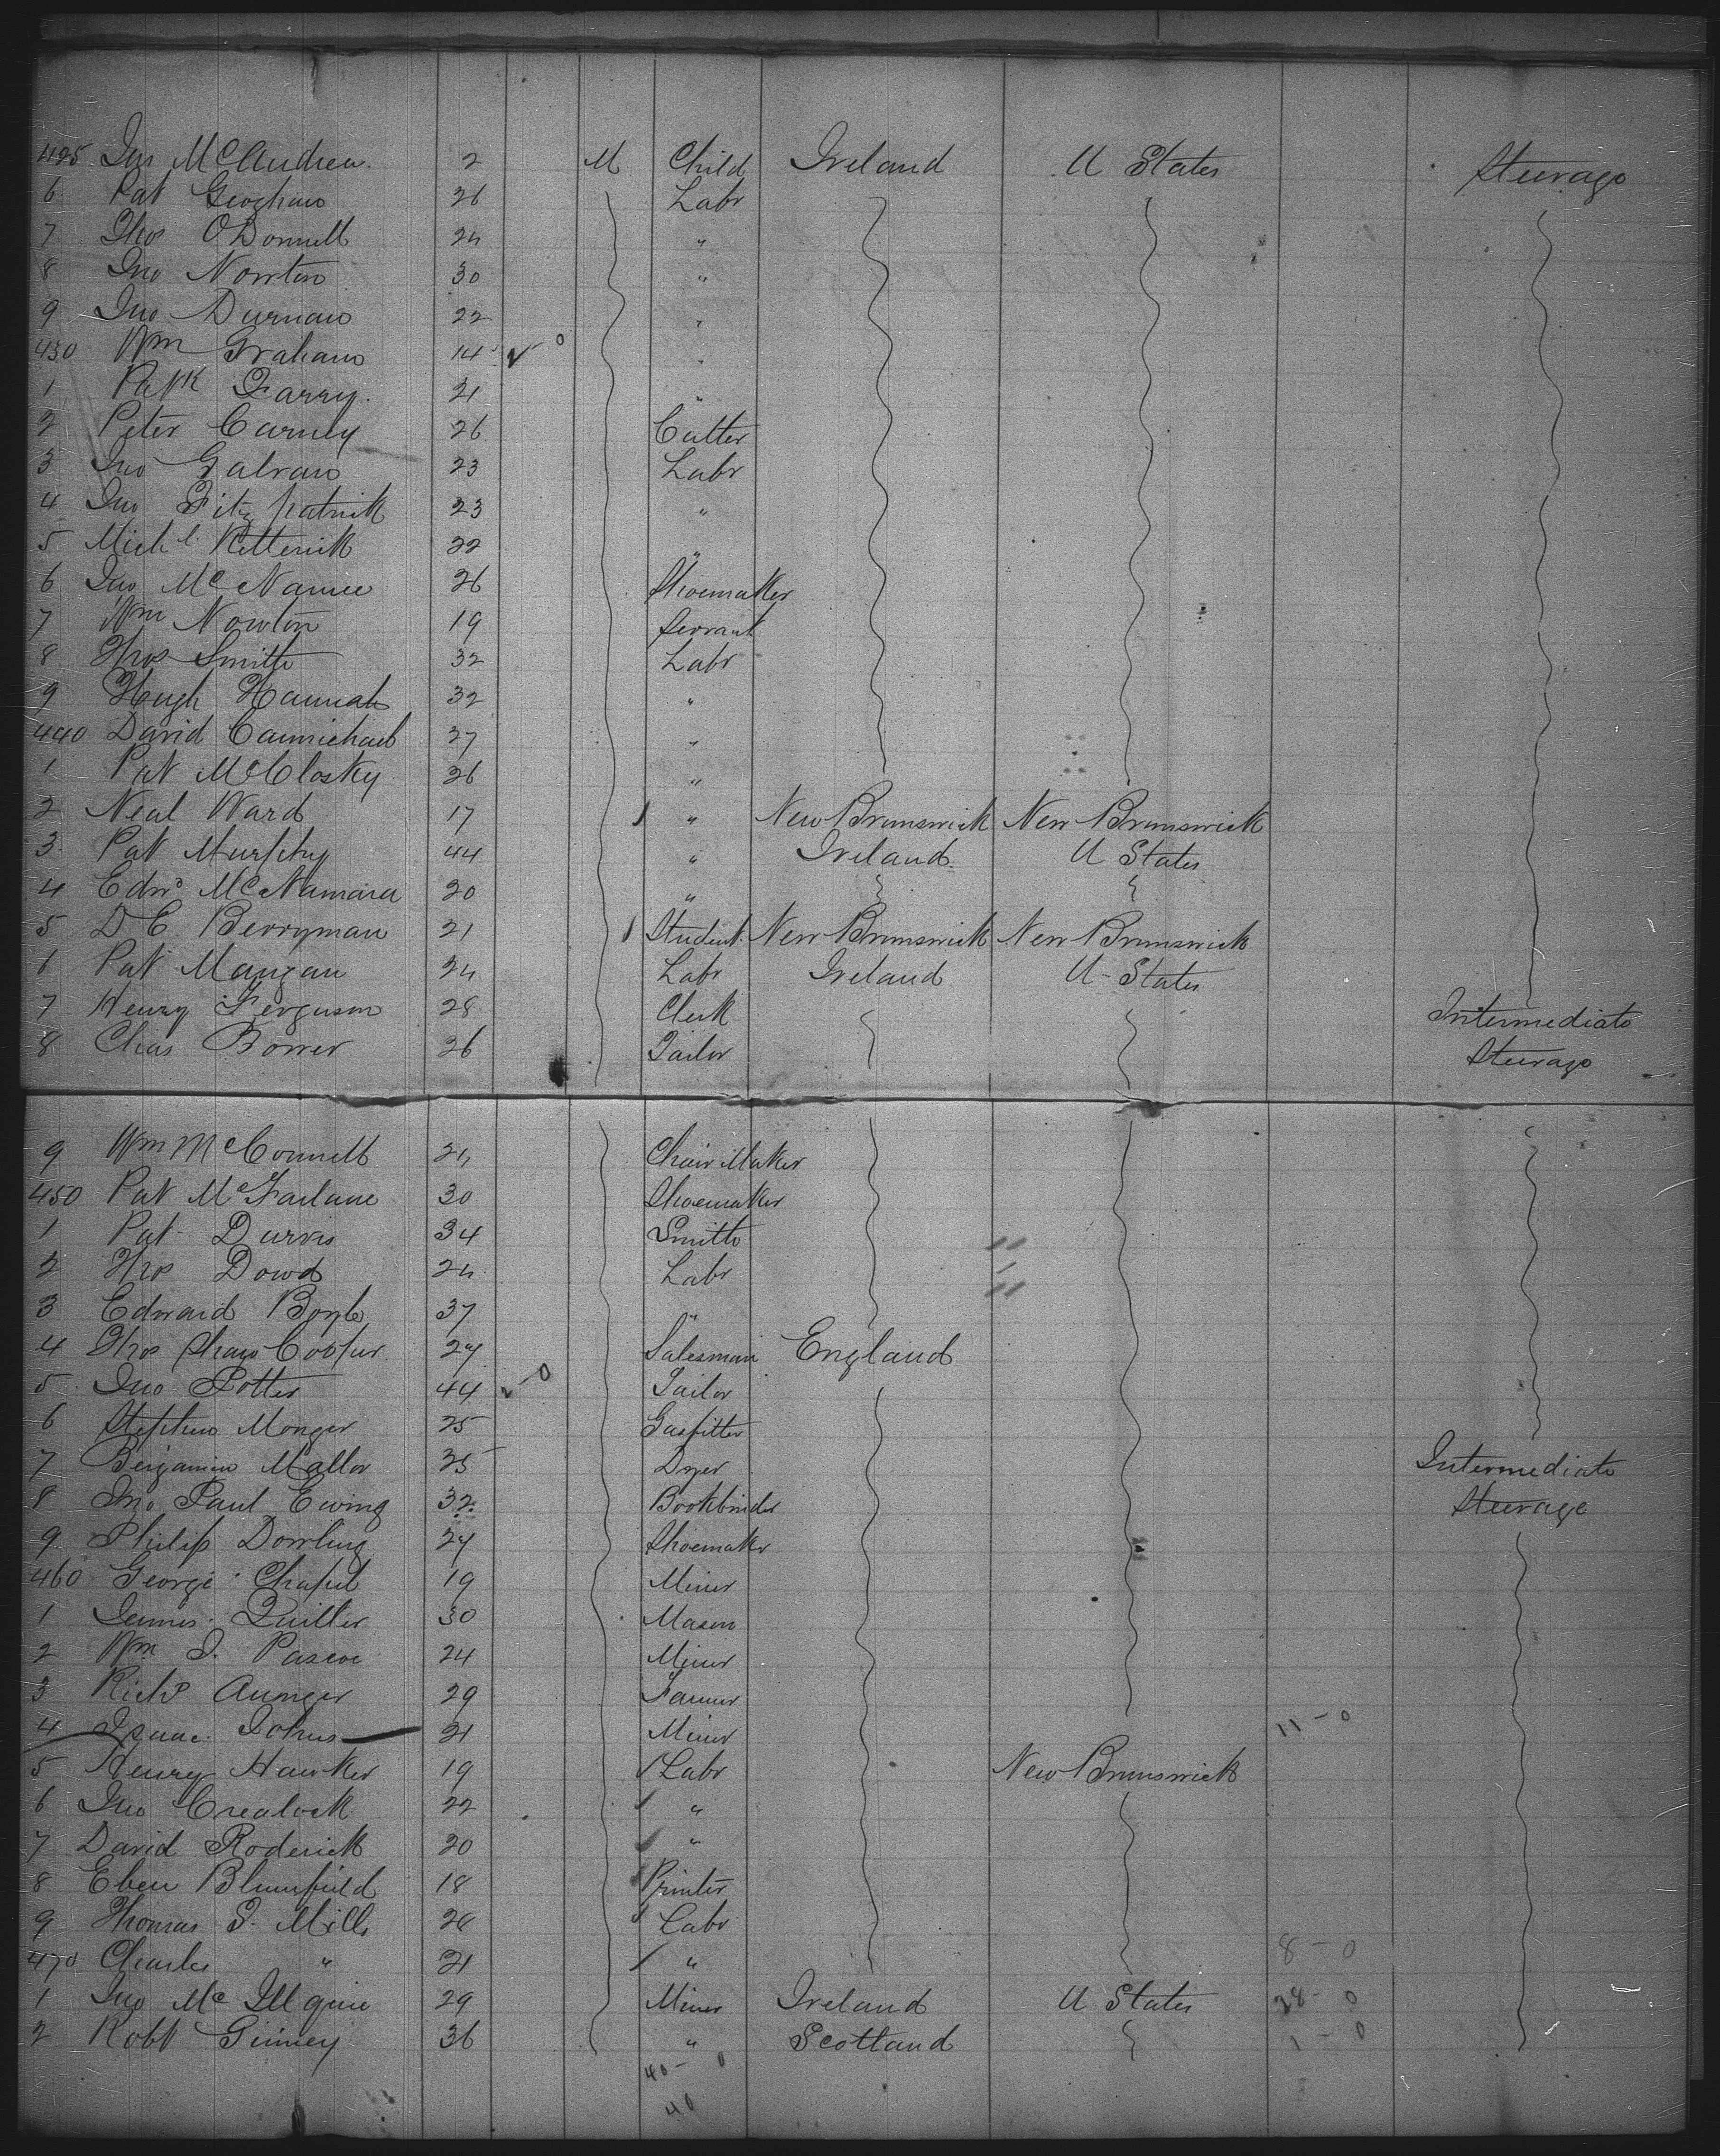 425 Jno McAndrew 2 M Child Ireland U States Steerage
6 Pat Geoghan 26 Labr
7 Thos O'Donnell 24 "
8 Jno Newton 30 "
9 Jno Durnan 22 "
430 Wm Graham 14 "
1 Patk Farry 21 "
2 Peter Carney 26 Cutter
3 Jno Galvan 23 Labr
4 Jno Fitzpatrick 23 "
5 Michl Ketterick 22 "
6 Jno McNamee 26 Shoemaker
7 Wm Newton 19 Servant
8 Thos Smith 32 Labr
9 Hugh Hannah 32 "
440 David Carmichael 27 "
1 Pat McClosky 26 "
2 Neal Ward 17 " New Brunswick New Brunswick
3 Pat Murphy 44 " Ireland U States
4 Edwd McNamara 20 "
5 D C Berryman 21 Student New Brunswick New Brunswick
6 Pat Mangan 24 Labr Ireland U States
7 Henry Ferguson 28 Clerk Intermediate
8 Chas Bower 26 Tailor Steerage
9 Wm McConnell 24 Chair Maker
450 Pat McFarlane 30 Shoemaker
1 Pat 34 Smith
2 Thos Dowd 24 Labr
3 Edward Boyle 37 "
4 Thos Shaw Cooper 27 Salesman England
5 Jno Potter 44 Tailor
6 Stephen Monger 25 Gasfitter
7 Benjamin Mallor 35 Dyer Intermediate
8 Jno Paul Ewing 32 Bookbinder Steerage
9 Philip Dowling 27 Shoemaker
460 George Chapel 19 Miner
1 James Quilter 30 Mason
2 Wm J. Pascoe 24 Miner
3 Richd Aunger 29 Farmer
4 Isaac Johns 21 Miner 11 - 0
5 Henry Hawker 19 Labr New Brunswick
6 Jno Crealock 22 "
7 David Roderick 20 "
8 Eben Blumfield 18 Printer
9 Thomas S. Mills 28 Labr
470 Charles " 21 " 8 - 0
1 Jno Mc Illquie 29 Miner Ireland U States 28 - 0
2 Robt Ginney 36 " Scotland 1 - 0
40 - 0
40